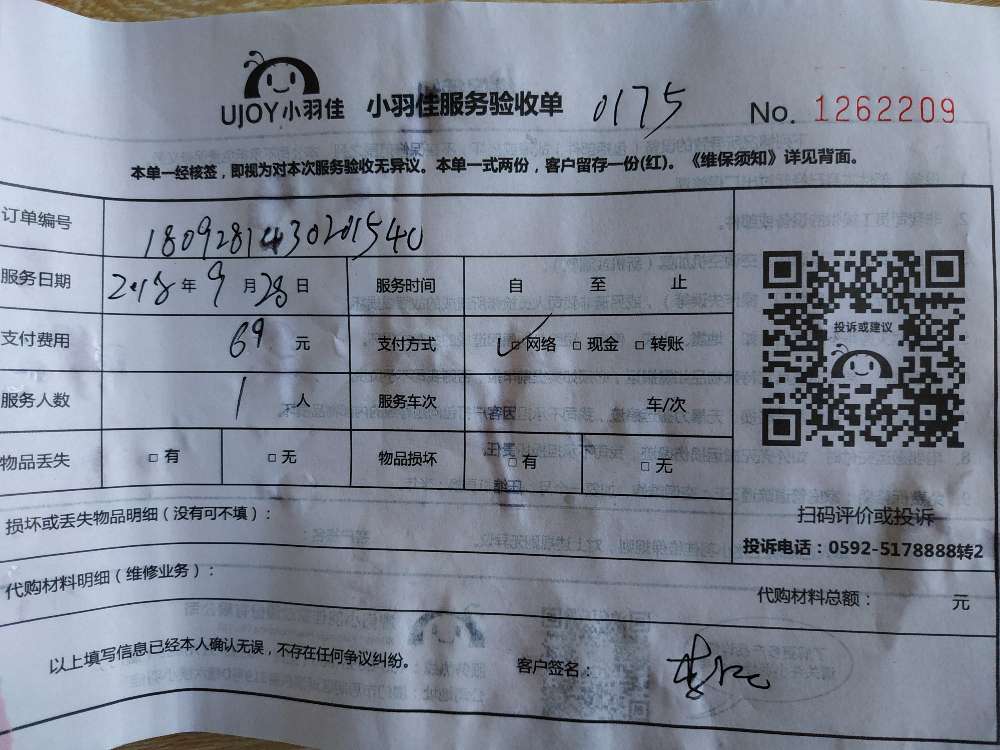 UJOY小羽佳 小羽佳服务验收单 0175 No. 1262209
本单一经核签，即视为对本次服务验收无异议。本单一式两份，客户留存一份(红)。《维保须知》详见背面。
订单编号 1809281430201540
服务日期 2018 年 9 月 28 日 服务时间 自 至 止
支付费用 69 元 支付方式 ✓网络 □ 现金 □ 转账
服务人数 1 人 服务车次 车/次
物品丢失 □ 有 □ 无 物品损坏 □ 有 □ 无
投诉或建议
扫码评价或投诉
投诉电话：0592-5178888转2
损坏或丢失物品明细（没有可不填）：
代购材料明细（维修业务）：
代购材料总额： 元
以上填写信息已经本人确认无误，不存在任何争议纠纷。 客户签名：